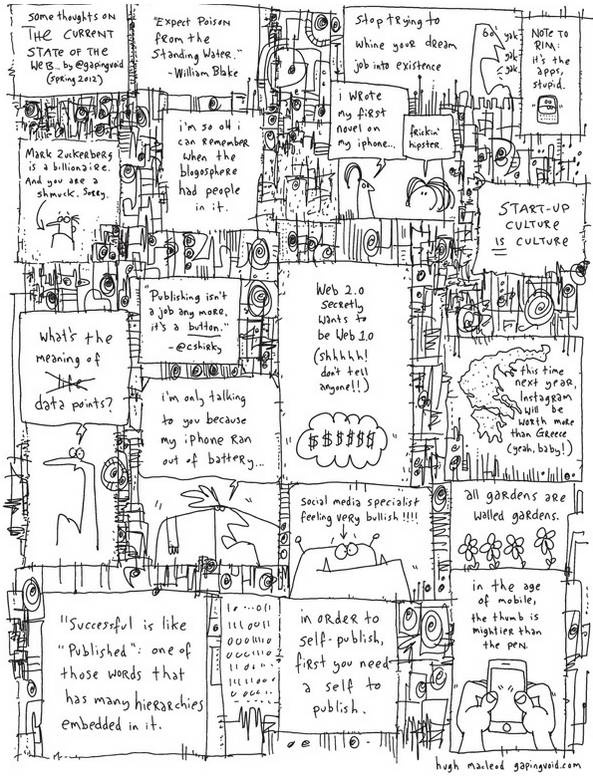 some thoughts on
THE CURRENT
STATE OF THE
WEB... by @gapingvoid
(spring 2012)
"Expect Poison
from the
Standing Water."
- William Blake
Stop trying to
whine your dream
job into existence
Go
yak
yak
yak
NOTE TO
RIM:
it's the
apps,
stupid.
i'm so old i
can remember
when the
blogosphere
had people
in it.
i wrote
my first
novel on
my iphone...
frickin'
hipster.
Mark Zuckerberg
is a billionaire.
And you are a
shmuck. Sorry.
START-UP
CULTURE
IS CULTURE
"Publishing isn't
a job any more,
it's a button."
- @cshirky
Web 2.0
Secretly
wants to
be Web 1.0
(shhhhh!
don't tell
anyone!!)
$$$$$$
What's the
meaning of
life
data points?
this time
next year,
Instagram
will be
worth more
than Greece
(yeah, baby!)
i'm only talking
to you because
my iPhone ran
out of battery...
Social media specialist
feeling very bullish !!!!
all gardens are
walled gardens.
"Successful is like
"Published": one of
those words that
has many hierarchies
embedded in it.
in order to
self-publish,
first you need
a self to
publish.
in the age
of mobile,
the thumb is
mightier than
the pen.
hugh macleod gapingvoid.com